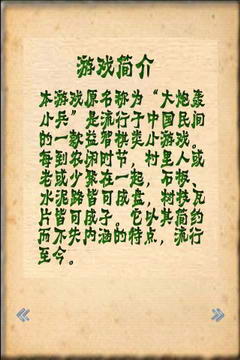 游戏简介
本游戏原名称为“大炮轰
小兵”是流行于中国民间
的一款益智棋类小游戏。
每到农闲时节，村里人或
老或少聚在一起，石板、
水泥路皆可成盘，树枝瓦
片皆可成子。它以其简约
而不失内涵的特点，流行
至今。